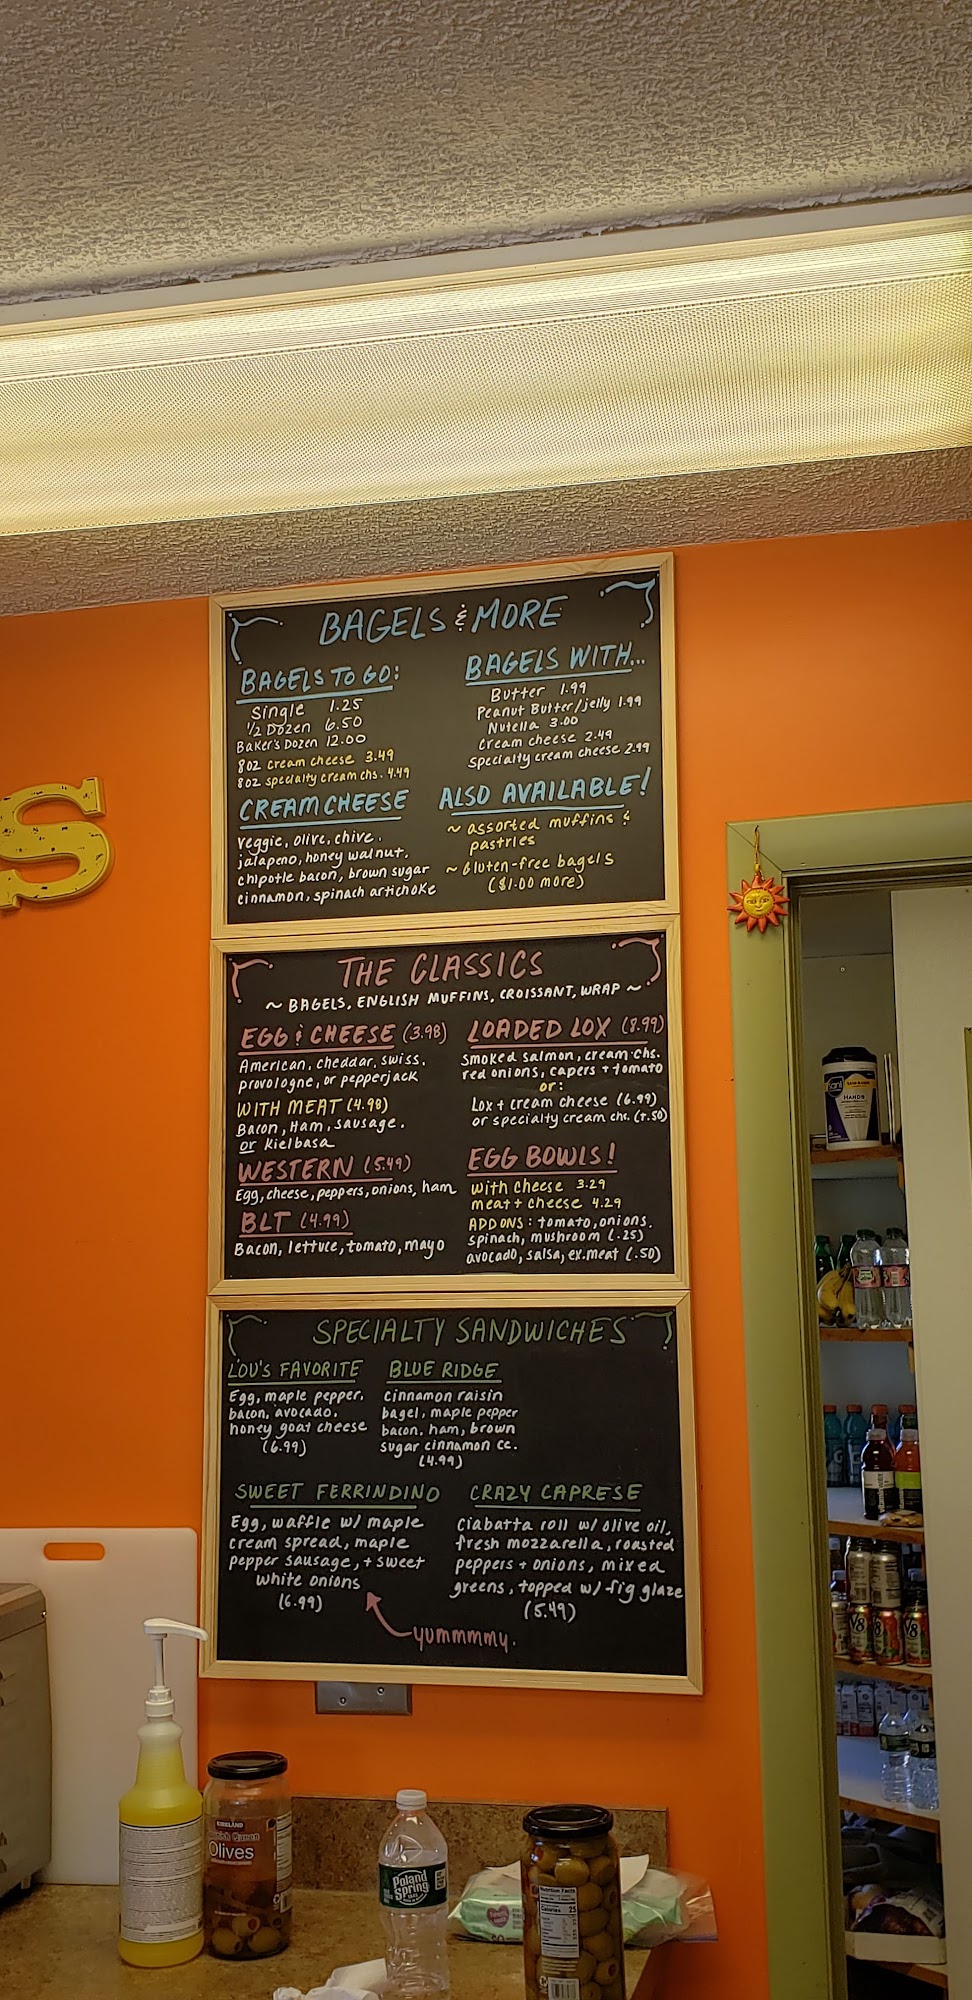 S
BAGELS & MORE
BAGELS TO GO:
Single 1.25
1/2 Dozen 6.50
Baker's Dozen 12.00
8oz cream cheese 3.49
8oz specialty cream chs. 4.49
BAGELS WITH...
Butter 1.99
Peanut Butter/jelly 1.99
Nutella 3.00
Cream cheese 2.49
Specialty cream cheese 2.99
CREAM CHEESE
veggie, olive, chive,
jalapeno, honey walnut,
chipotle bacon, brown sugar
cinnamon, spinach artichoke
ALSO AVAILABLE!
~ assorted muffins &
pastries
~ Gluten-free bagels
($1.00 more)
THE CLASSICS
~ BAGELS, ENGLISH MUFFINS, CROISSANT, WRAP ~
EGG & CHEESE (3.98)
American, cheddar, swiss,
provologne, or pepperjack
WITH MEAT (4.98)
Bacon, Ham, sausage,
or Kielbasa
WESTERN (5.49)
Egg, cheese, peppers, onions, ham
BLT (4.99)
Bacon, lettuce, tomato, mayo
LOADED LOX (8.99)
smoked salmon, cream chs.
red onions, capers + tomato
or:
Lox + cream cheese (6.99)
or specialty cream chs. (7.50)
EGG BOWLS!
with cheese 3.29
meat + cheese 4.29
ADD ONS: tomato, onions,
spinach, mushroom (.25)
avocado, salsa, ex.meat (.50)
SPECIALTY SANDWICHES
LOU'S FAVORITE
Egg, maple pepper,
bacon, avocado,
honey goat cheese
(6.99)
BLUE RIDGE
cinnamon raisin
bagel, maple pepper
bacon, ham, brown
sugar cinnamon cc.
(4.99)
SWEET FERRINDINO
Egg, waffle w/ maple
cream spread, maple
pepper sausage, + sweet
white onions
(6.99)
CRAZY CAPRESE
Ciabatta roll w/ olive oil,
fresh mozzarella, roasted
peppers + onions, mixed
greens, topped w/ fig glaze
(5.49)
yummmmy.
HANDS
V8
V8
KIRKLAND
Queen
Olives
Poland
Spring
Nutrition Facts
Calories 25